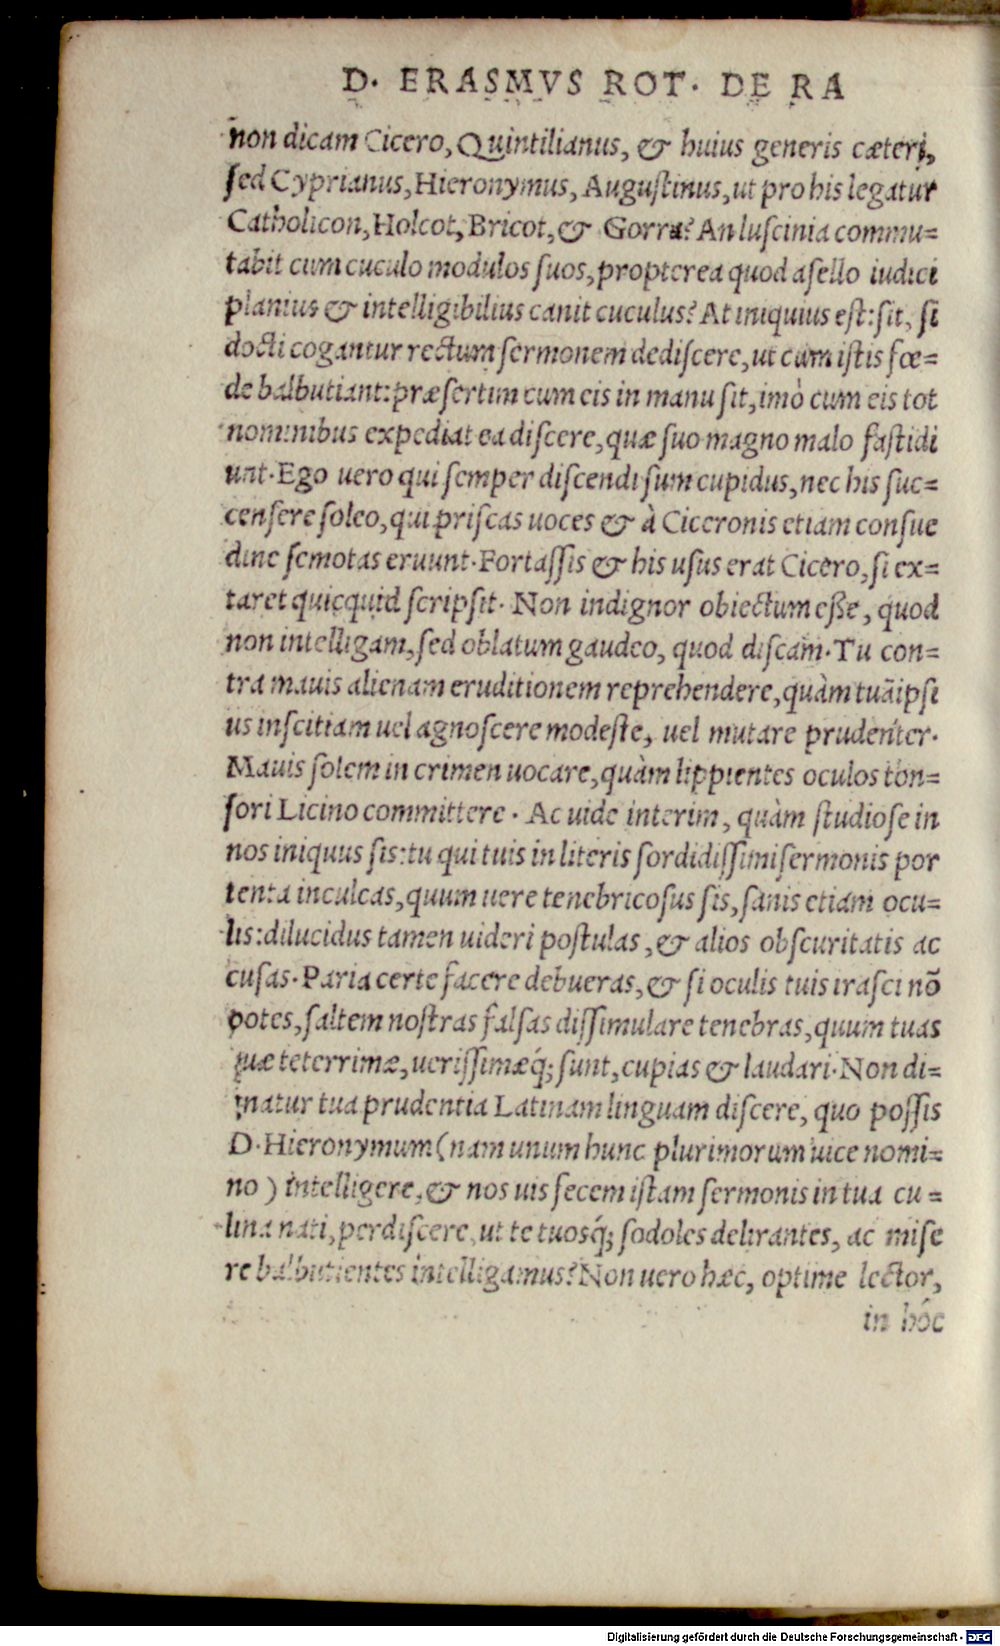 D. ERASMVS ROT. DE RA
non dicam Cicero, Quintilianus, & huius generis cæteri,
ſed Cyprianus, Hieronymus, Auguſtinus, ut pro his legatur
Catholicon, Holcot, Bricot, & Gorra? An luſcinia commu=
tabit cum cuculo modulos ſuos, propterea quod aſello iudici
planius & intelligibilius canit cuculus? At iniquius eſt: ſit, ſi
docti cogantur rectum ſermonem dediſcere, ut cum iſtis fœ=
de balbutiant: præſertim cum eis in manu ſit, imò cum eis tot
nominibus expediat ea diſcere, quæ ſuo magno malo faſtidi
unt. Ego uero qui ſemper diſcendi ſum cupidus, nec his ſuc=
cenſere ſoleo, qui priſcas uoces & à Ciceronis etiam conſue
dine ſemotas eruunt. Fortaſſis & his uſus erat Cicero, ſi ex=
taret quicquid ſcripſit. Non indignor obiectum eſſe, quod
non intelligam, ſed oblatum gaudeo, quod diſcam. Tu con=
tra mauis alienam eruditionem reprehendere, quàm tuãipſi
us inſcitiam uel agnoſcere modeſte, uel mutare prudenter.
Mauis ſolem in crimen uocare, quàm lippientes oculos ton=
ſori Licino committere. Ac uide interim, quàm ſtudioſe in
nos iniquus ſis: tu qui tuis in literis ſordidiſſimi ſermonis por
tenta inculcas, quum uere tenebricoſus ſis, ſanis etiam ocu=
lis: dilucidus tamen uideri poſtulas, & alios obſcuritatis ac
cuſas. Paria certe facere debueras, & ſi oculis tuis iraſci nõ
potes, ſaltem noſtras falſas diſſimulare tenebras, quum tuas
quæ teterrimæ, ueriſſimæq́; ſunt, cupias & laudari. Non di=
gnatur tua prudentia Latinam linguam diſcere, quo poſſis
D. Hieronymum (nam unum hunc plurimorum uice nomi=
no) intelligere, & nos uis fecem iſtam ſermonis in tua cu=
lina nati, perdiſcere, ut te tuosq́; ſodoles delirantes, ac miſe
re balbutientes intelligamus? Non uero hæc, optime lector,
in hóc
Digitalisierung gefördert durch die Deutsche Forschungsgemeinschaft - DFG